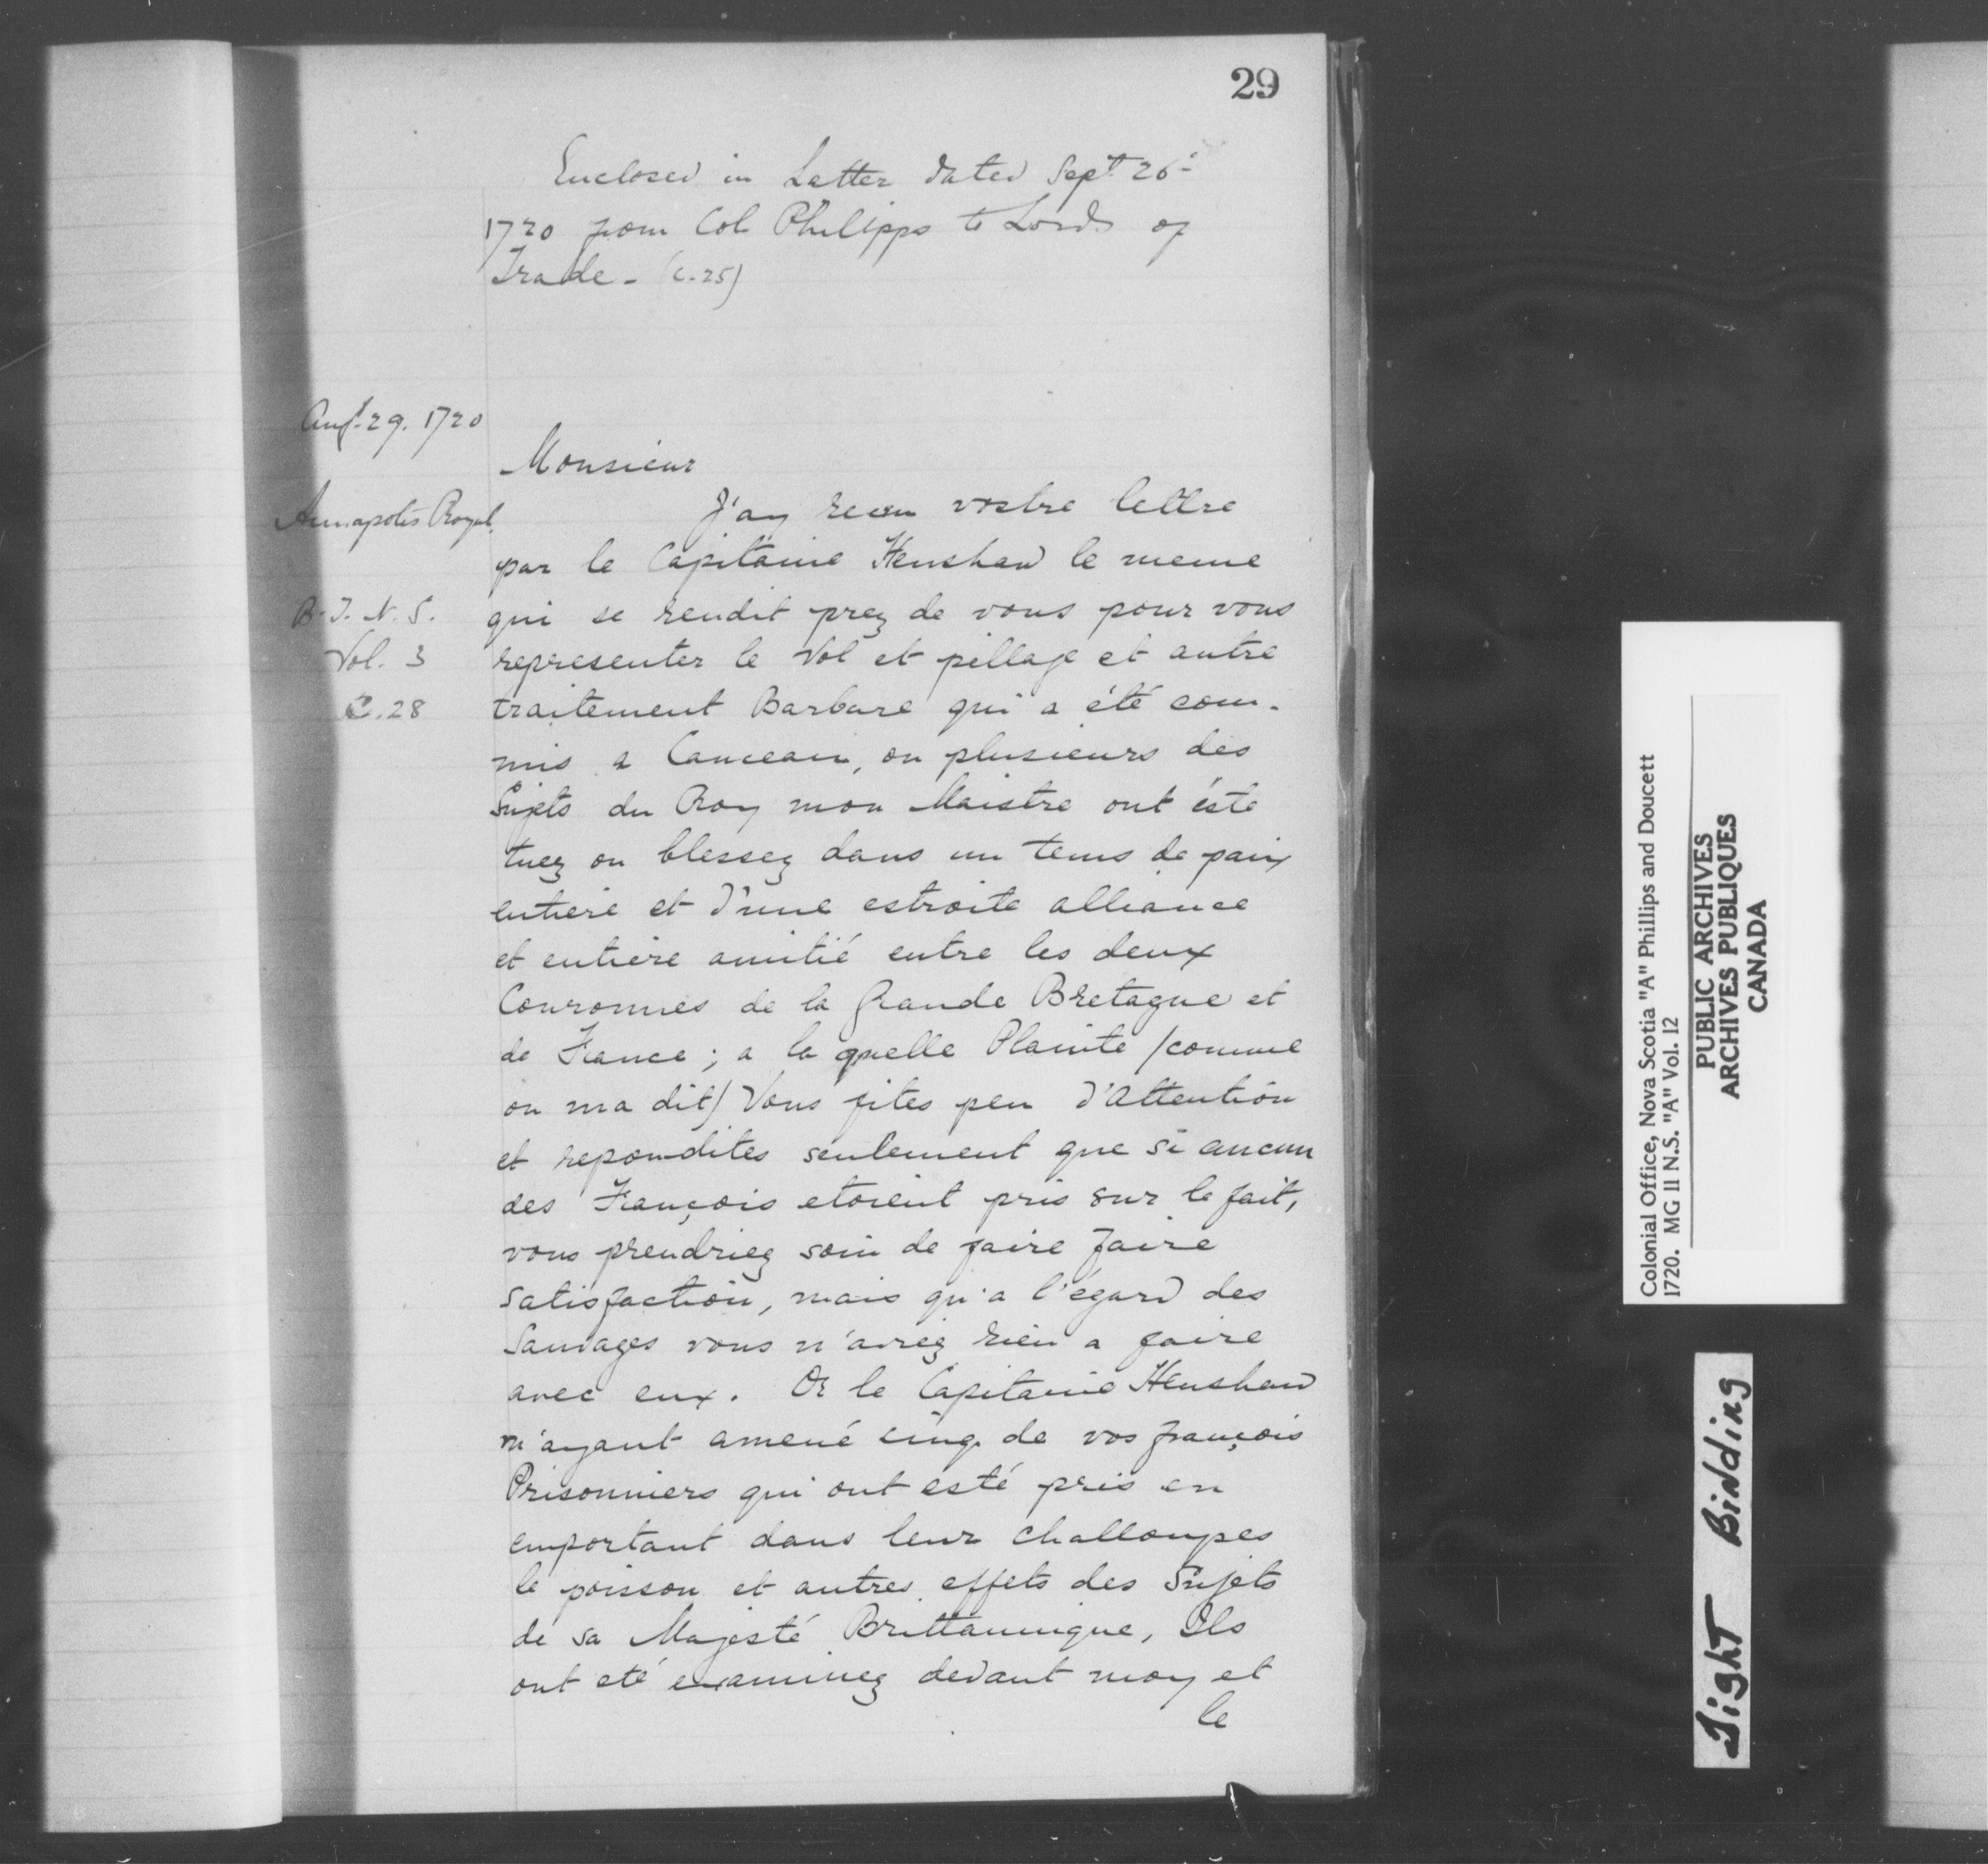 29
Enclosed in Letter dated Sept. 26
1720 from Col Philipps to Lords of
Trade - (C.25)
Aug. 29. 1720
Annapolis Royal.
B.T.N.S.
Vol. 3
C.28
Monsieur
J'ay receu vostre lettre
par le Capitaine Henshaw le meme
qui se rendit prez de vous pour vous
representer le Vol et pillage et autre
traitement Barbare qui a été com-
mis a Canceau, ou plusieurs des
Sujets du Roy mon Maistre ont éste
tuez ou blessez dans un tems de paix
entiere et d'une estroite alliance
et entiere amitié entre les deux
Couronnes de la Grande Bretagne et
de France; a la quelle Plainte /comme
on ma dit/ Vous fites peu d'attention
et repondites seulement que si aucun
des François etoient pris sur le fait,
vous prendriez soin de faire faire
satisfaction, mais qu'a l'égard des
Sauvages vous n'aviez rien a faire
avec eux. Or le Capitaine Henshaw
m'ayant amené cinq de vos françois
Prisonniers qui ont esté pris en
emportant dans leur challoupes
le poisson et autres effets des Sujets
de sa Majesté Brittannique, Ils
ont eté examinez devant moy et
le
Colonial Office, Nova Scotia "A" Phillips and Doucett
1720. MG 11 N.S. "A" Vol. 12
PUBLIC ARCHIVES
ARCHIVES PUBLIQUES
CANADA
Tight Bidding